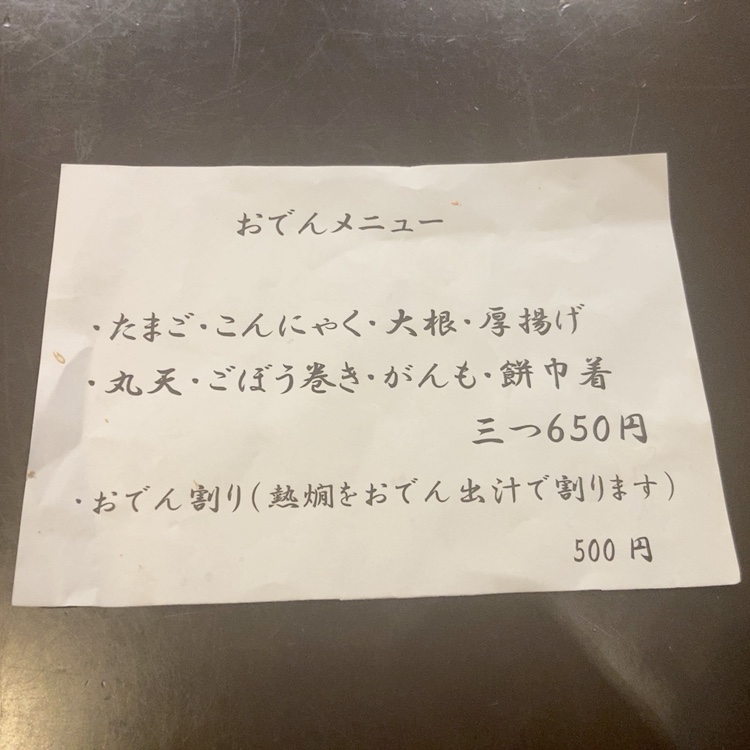 おでんメニュー
・たまご・こんにゃく・大根・厚揚げ
・丸天・ごぼう巻き・がんも・餅巾着
三つ650円
・おでん割り(熱燗をおでん出汁で割ります)
500円